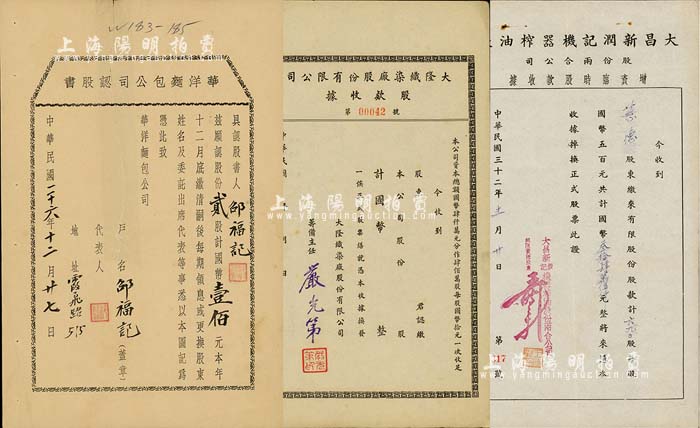 W183-185
華洋麵包公司認股書
具認股書人邵福記
茲願認股份貳股計國幣壹佰元本年
十二月底繳清嗣後每期領息或更換股東
姓名及委託出席代表等事悉以本圖記為
憑此致
華洋麵包公司
戶名邵福記(蓋章)
代表人
地址霞飛路515
中華民國二十六年十二月廿七日
大隆織染廠股份有限公司
股款收據
第00042號
本公司資本總額國幣肆仟萬元分作肆佰萬股每股國幣拾元一次收足
今收到
股東君認繳
本公司股份股
計國幣整
一俟正式股票繕就憑本收據換發
大隆織染廠股份有限公司
籌備主任嚴光第
中華民國
大昌新潤記機器榨油
股份兩合公司
增資臨時股款收據
今收到
股東繳來有限股份股款計股每股
國幣五百元共計國幣元整將來憑本
收據掉換正式股票此證
中華民國三十二年十一月廿日
第17號
上海陽明拍賣
www.yangmingauction.com
上海陽明拍賣
www.yangmingauction.com
上海陽明拍賣
www.yangmingauction.com